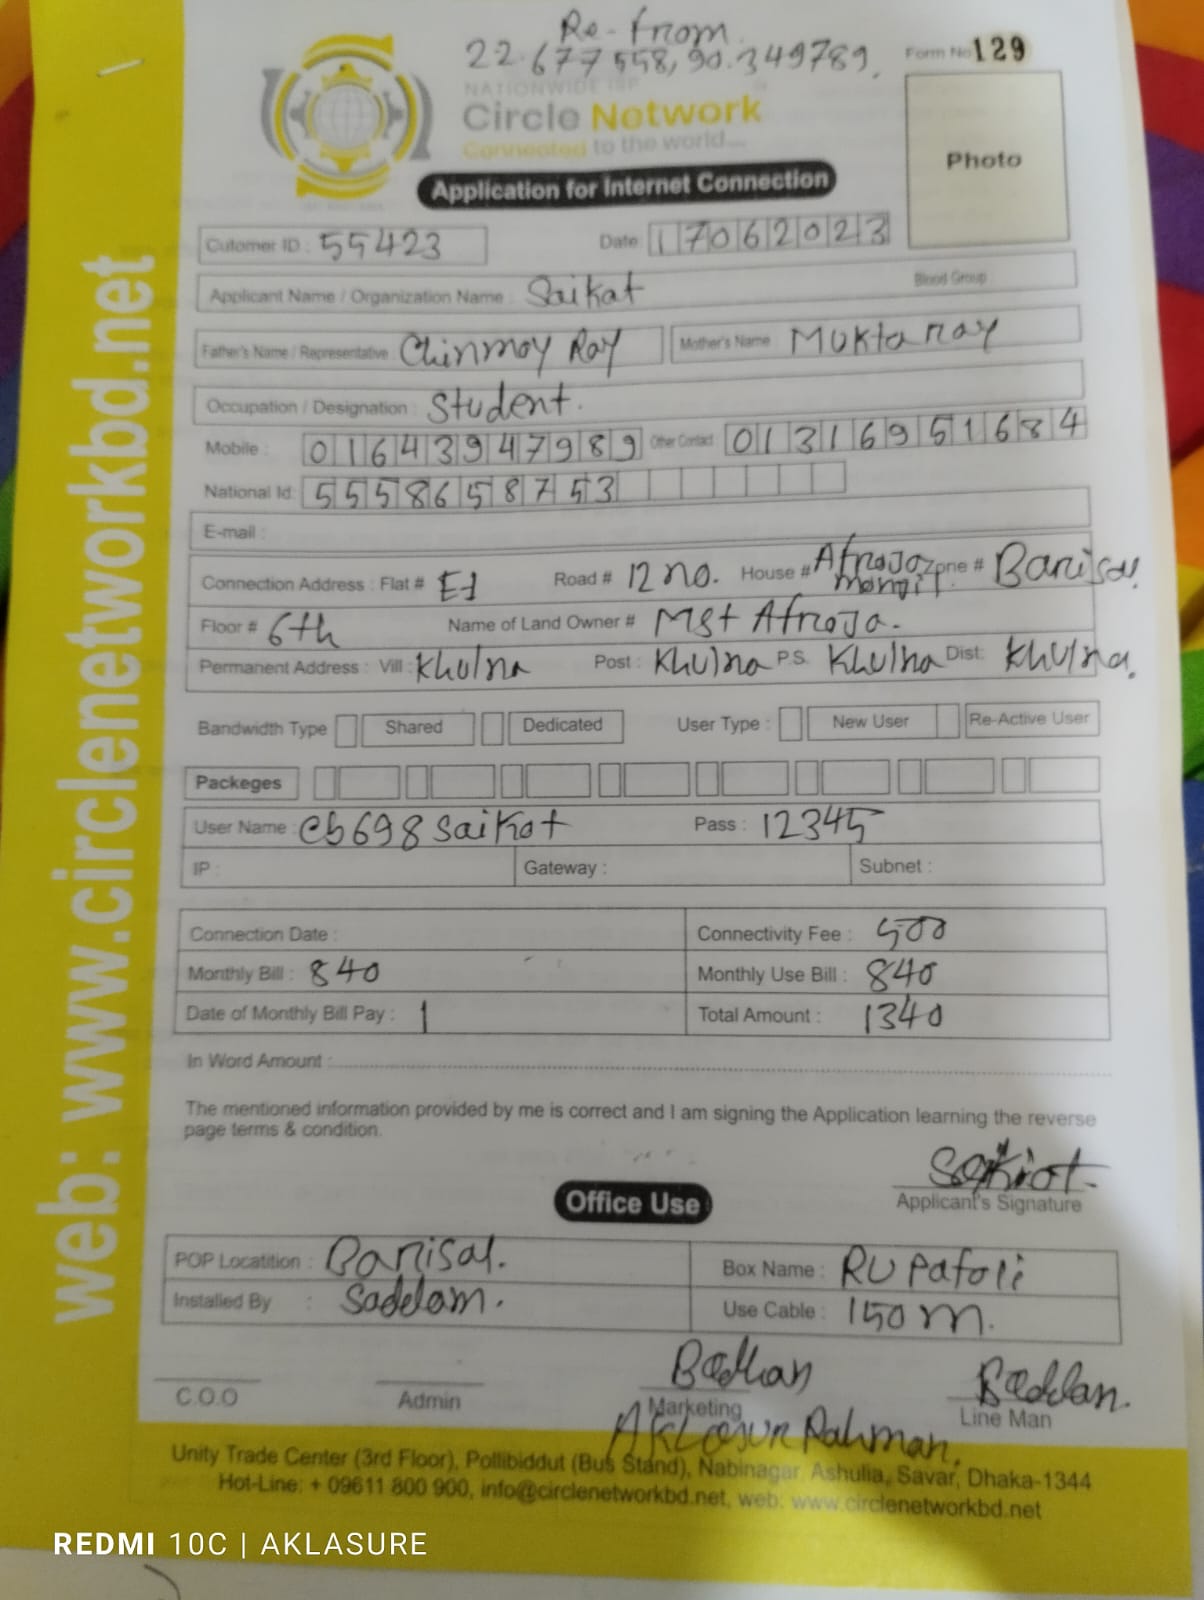 Re-from
22.677558, 90.349789,
Form No 129
NATIONWIDE ISP
Circle Network
Connected to the world...
Photo
Application for Internet Connection
Cutomer ID : 55423 Date 17062023
Applicant Name / Organization Name : Saikat Blood Group
Father's Name / Representative : Chinmoy Ray Mother's Name Mukta ray
Occupation / Designation : Student.
Mobile : 01643947989 Other Contact 01316951684
National Id: 5558658753
E-mail :
Connection Address : Flat # E1 Road # 12 no. House # Afroja Zone # Barisal
Floor # 6th Name of Land Owner # Mst Afroja.
Permanent Address : Vill : Khulna Post : Khulna P.S. Khulna Dist: Khulna.
Bandwidth Type Shared Dedicated User Type : New User Re-Active User
Packeges
User Name : cb698saikat Pass : 12345
IP : Gateway : Subnet :
Connection Date : Connectivity Fee : 500
Monthly Bill : 840 Monthly Use Bill : 840
Date of Monthly Bill Pay : 1 Total Amount : 1340
In Word Amount :
The mentioned information provided by me is correct and I am signing the Application learning the reverse
page terms & condition.
Saikat
Applicant's Signature
Office Use
POP Locatition : Barisal. Box Name : RUPatoli
Installed By : Saddam. Use Cable : 150 m.
Badhan
C.O.O Admin Marketing Line Man
Aklasur Rahman.
Unity Trade Center (3rd Floor), Pollibiddut (Bus Stand), Nabinagar, Ashulia, Savar, Dhaka-1344
Hot-Line: + 09611 800 900, info@circlenetworkbd.net, web: www.circlenetworkbd.net
web: www.circlenetworkbd.net
REDMI 10C | AKLASURE